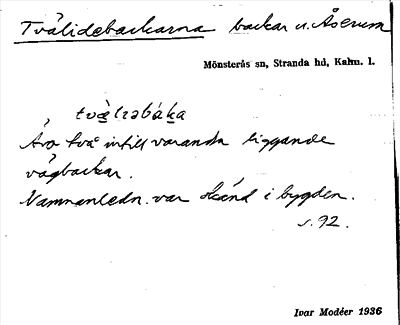 Tvålidebackarna backar n. Åserum
Mönsterås sn, Stranda hd, Kalm. l.
Äro två intill varandra liggande
vägbackar.
Namnanledn. var okänd i bygden.
s. 92.
Ivar Modéer 1936